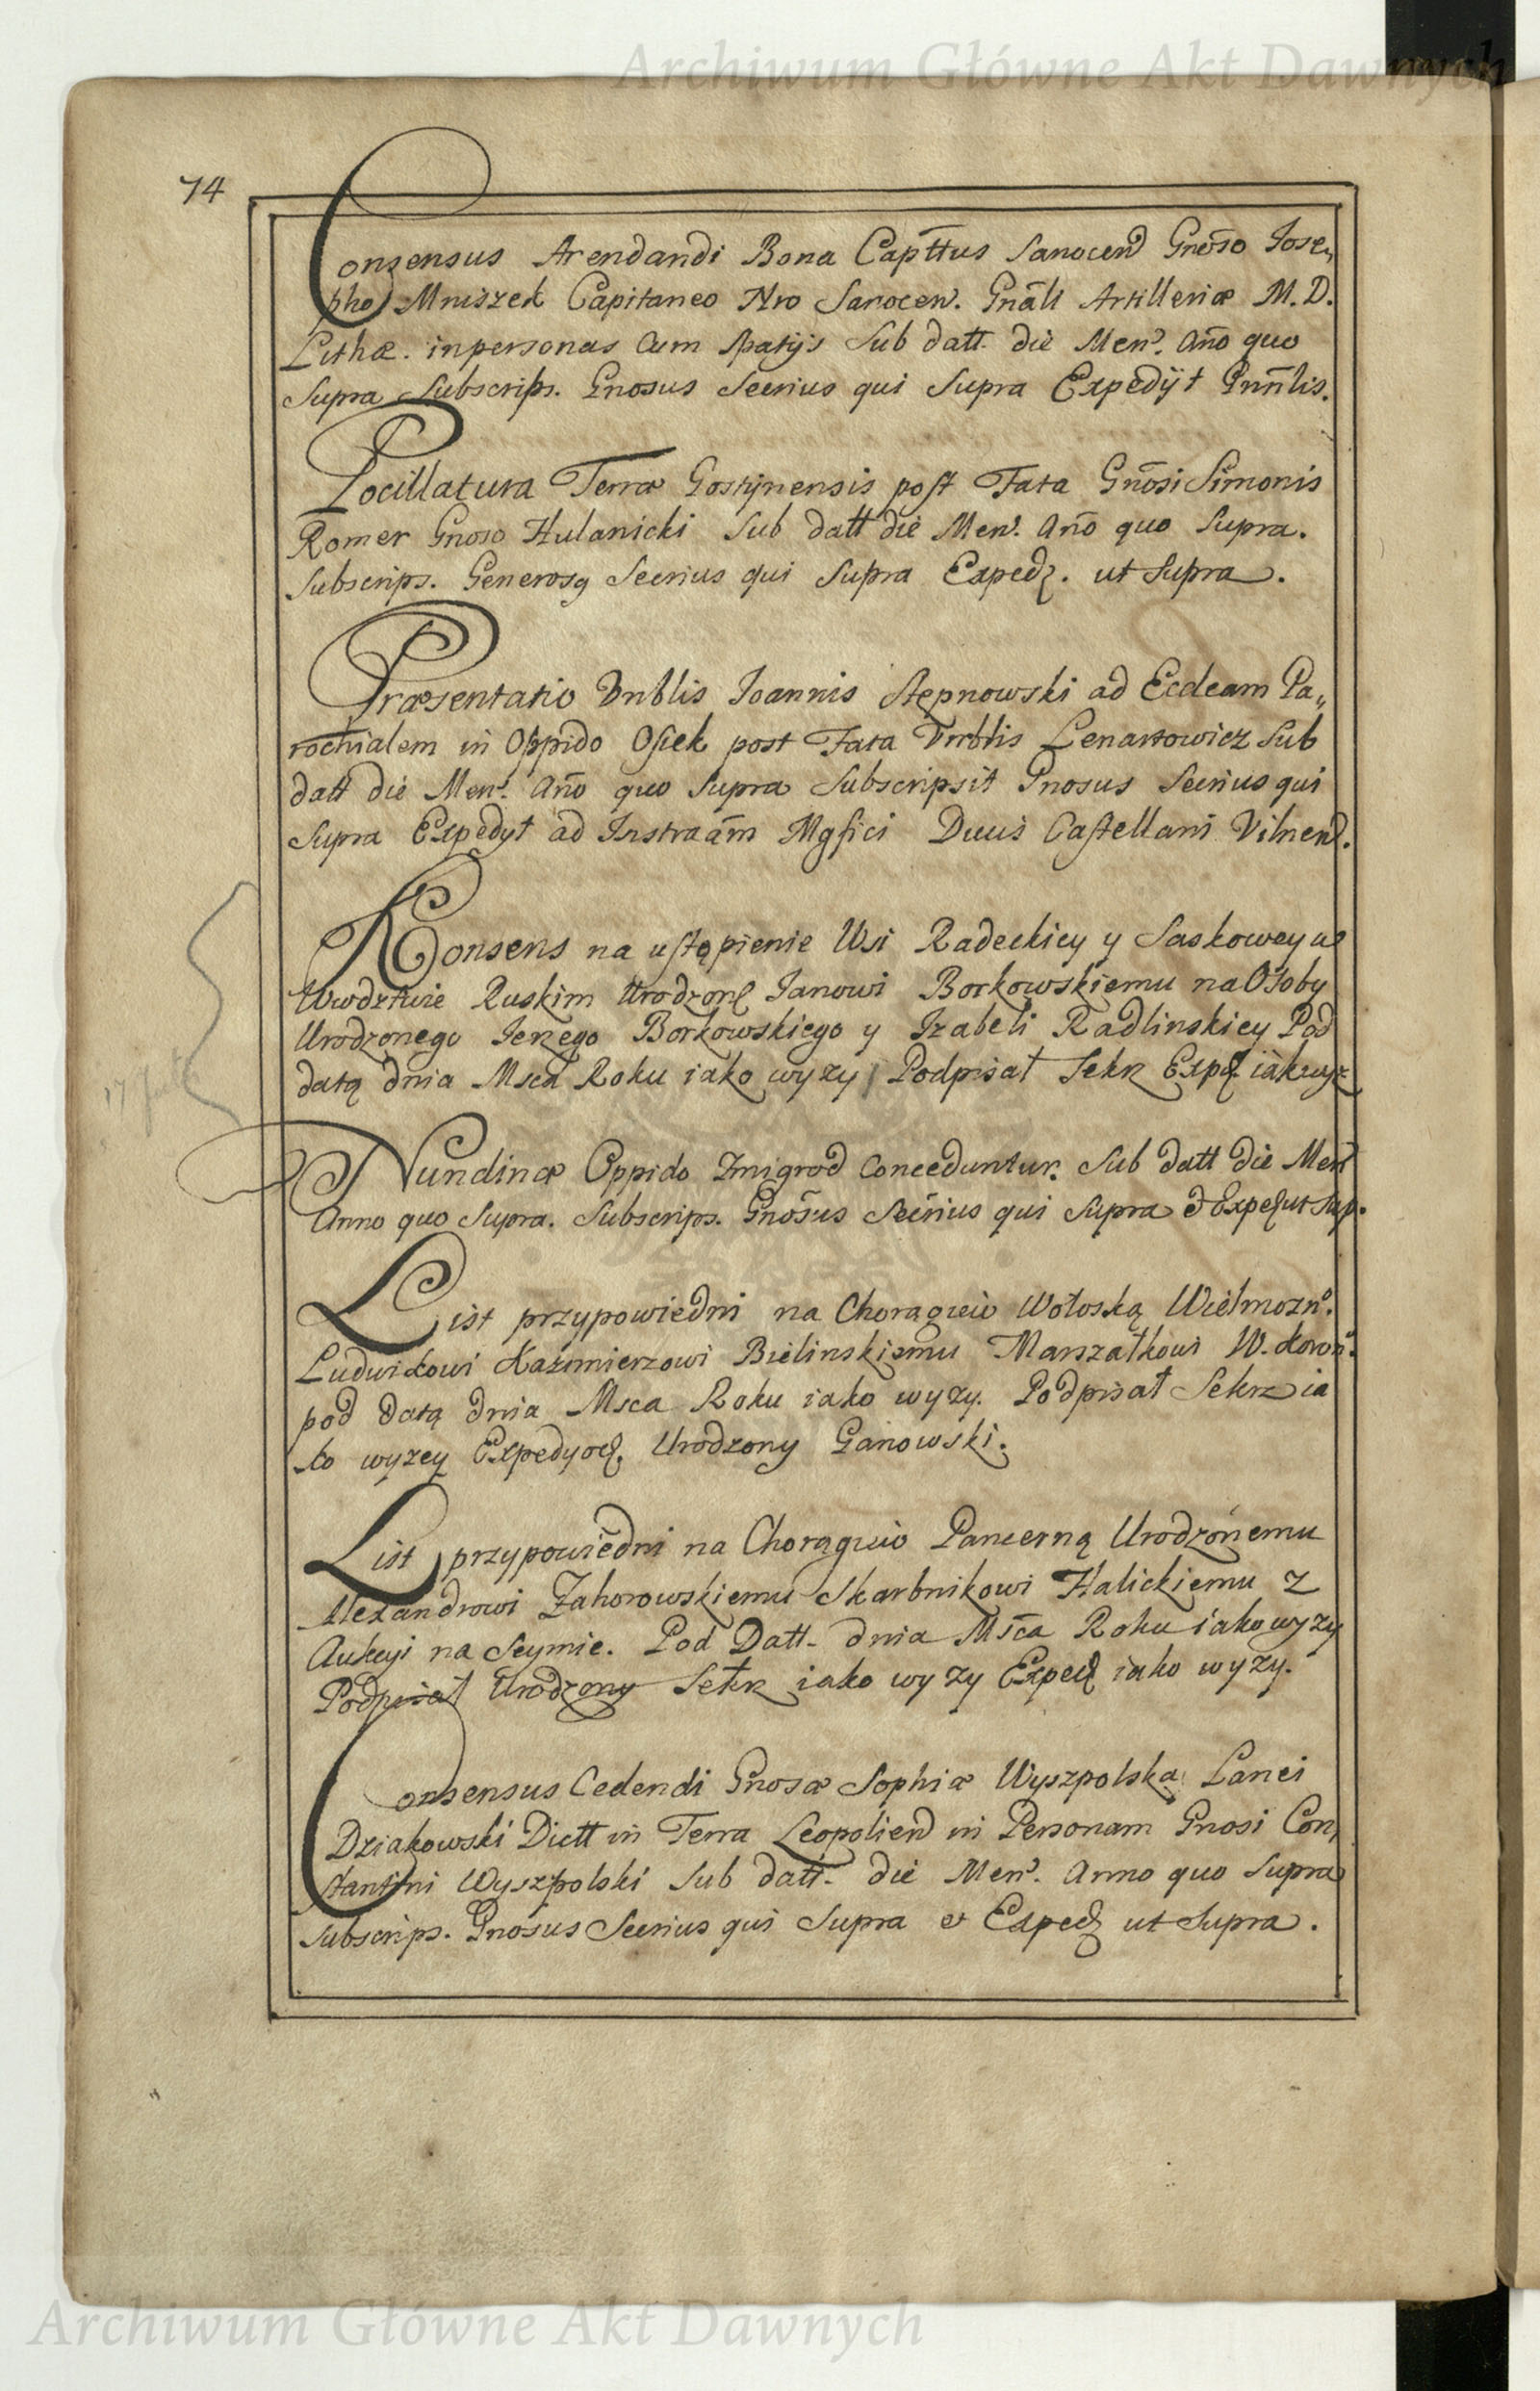 Archiwum Główne Akt Dawnych
74
Consensus Arendandi Bona Capttus Sanocen Gnoso Jose„
pho Mniszek Capitaneo Nro Sanocen. Gnäli Artilleriæ M. D.
Lithæ. inpersonas Cum Spatijs Sub datt. die Men. Año quo
Supra Subscrips. Gnosus Secrius qui Supra Expedijt Gnñlis.
Pocillatura Terræ Gostynensis post Fata Gnosi Simonis
Romer Gnoso Hulanicki Sub datt die Men. Año quo Supra.
Subscrips. Generosq Secrius qui Supra Exped. ut Supra.
Præsentatio Vnblis Joannis Stępnowski ad Eccleam Pa„
rochialem in Oppido Osiek post Fata Vnblis Lenartowicz Sub
datt die Men. Año quo Supra Subscripsit Gnosus Secrius qui
Supra Expedyt ad Instraãm Mgfici Duus Castellani Vilnen.
Konsens na ustąpienie Wsi Radeckiey y Saskowey w
Wwodztwie Ruskim Urodzone Janowi Borkowskiemu na Osoby
Urodzonego Jerzego Borkowskiego y Izabeli Radlinskiey Pod
datą dnia Msca Roku iako wyzy Podpisał Sekr Exped. iakwyz
17
Nundinæ Oppido Zmigrod Conceduntur. Sub datt die Men
Anno quo Supra. Subscrips. Gnosus Secrius qui Supra & Exped ut Sup.
List przypowiedni na Chorągwio Wołoską Wielmozn.
Ludwikowi Kazimierzowi Bielinskiemu Marszałkowi W. Koron.
pod datą dnia Msca Roku iako wyzy. Podpisał Sekrz ia
ko wyzey Expedyoe. Urodzony Ganowski.
List przypowiedni na Chorągwio Pancerną Urodzonemu
Alexandrowi Zahorowskiemu Skarbnikowi Halickiemu z
Aukcyi na Seymie. Pod Datt. dnia Msca Roku iako wyzy
Podpisał Urodzony Sekr iako wyzy Exped iako wyzy.
Consensus Cedendi Gnosæ Sophiæ Wyszpolska Lanei
Dziakowski Dictt in Terra Leopolien in Personam Gnosi Con„
stantini Wyszpolski Sub datt. die Men. Anno quo Supra
Subscrips. Gnosus Secrius qui Supra et Exped ut Supra.
Archiwum Główne Akt Dawnych